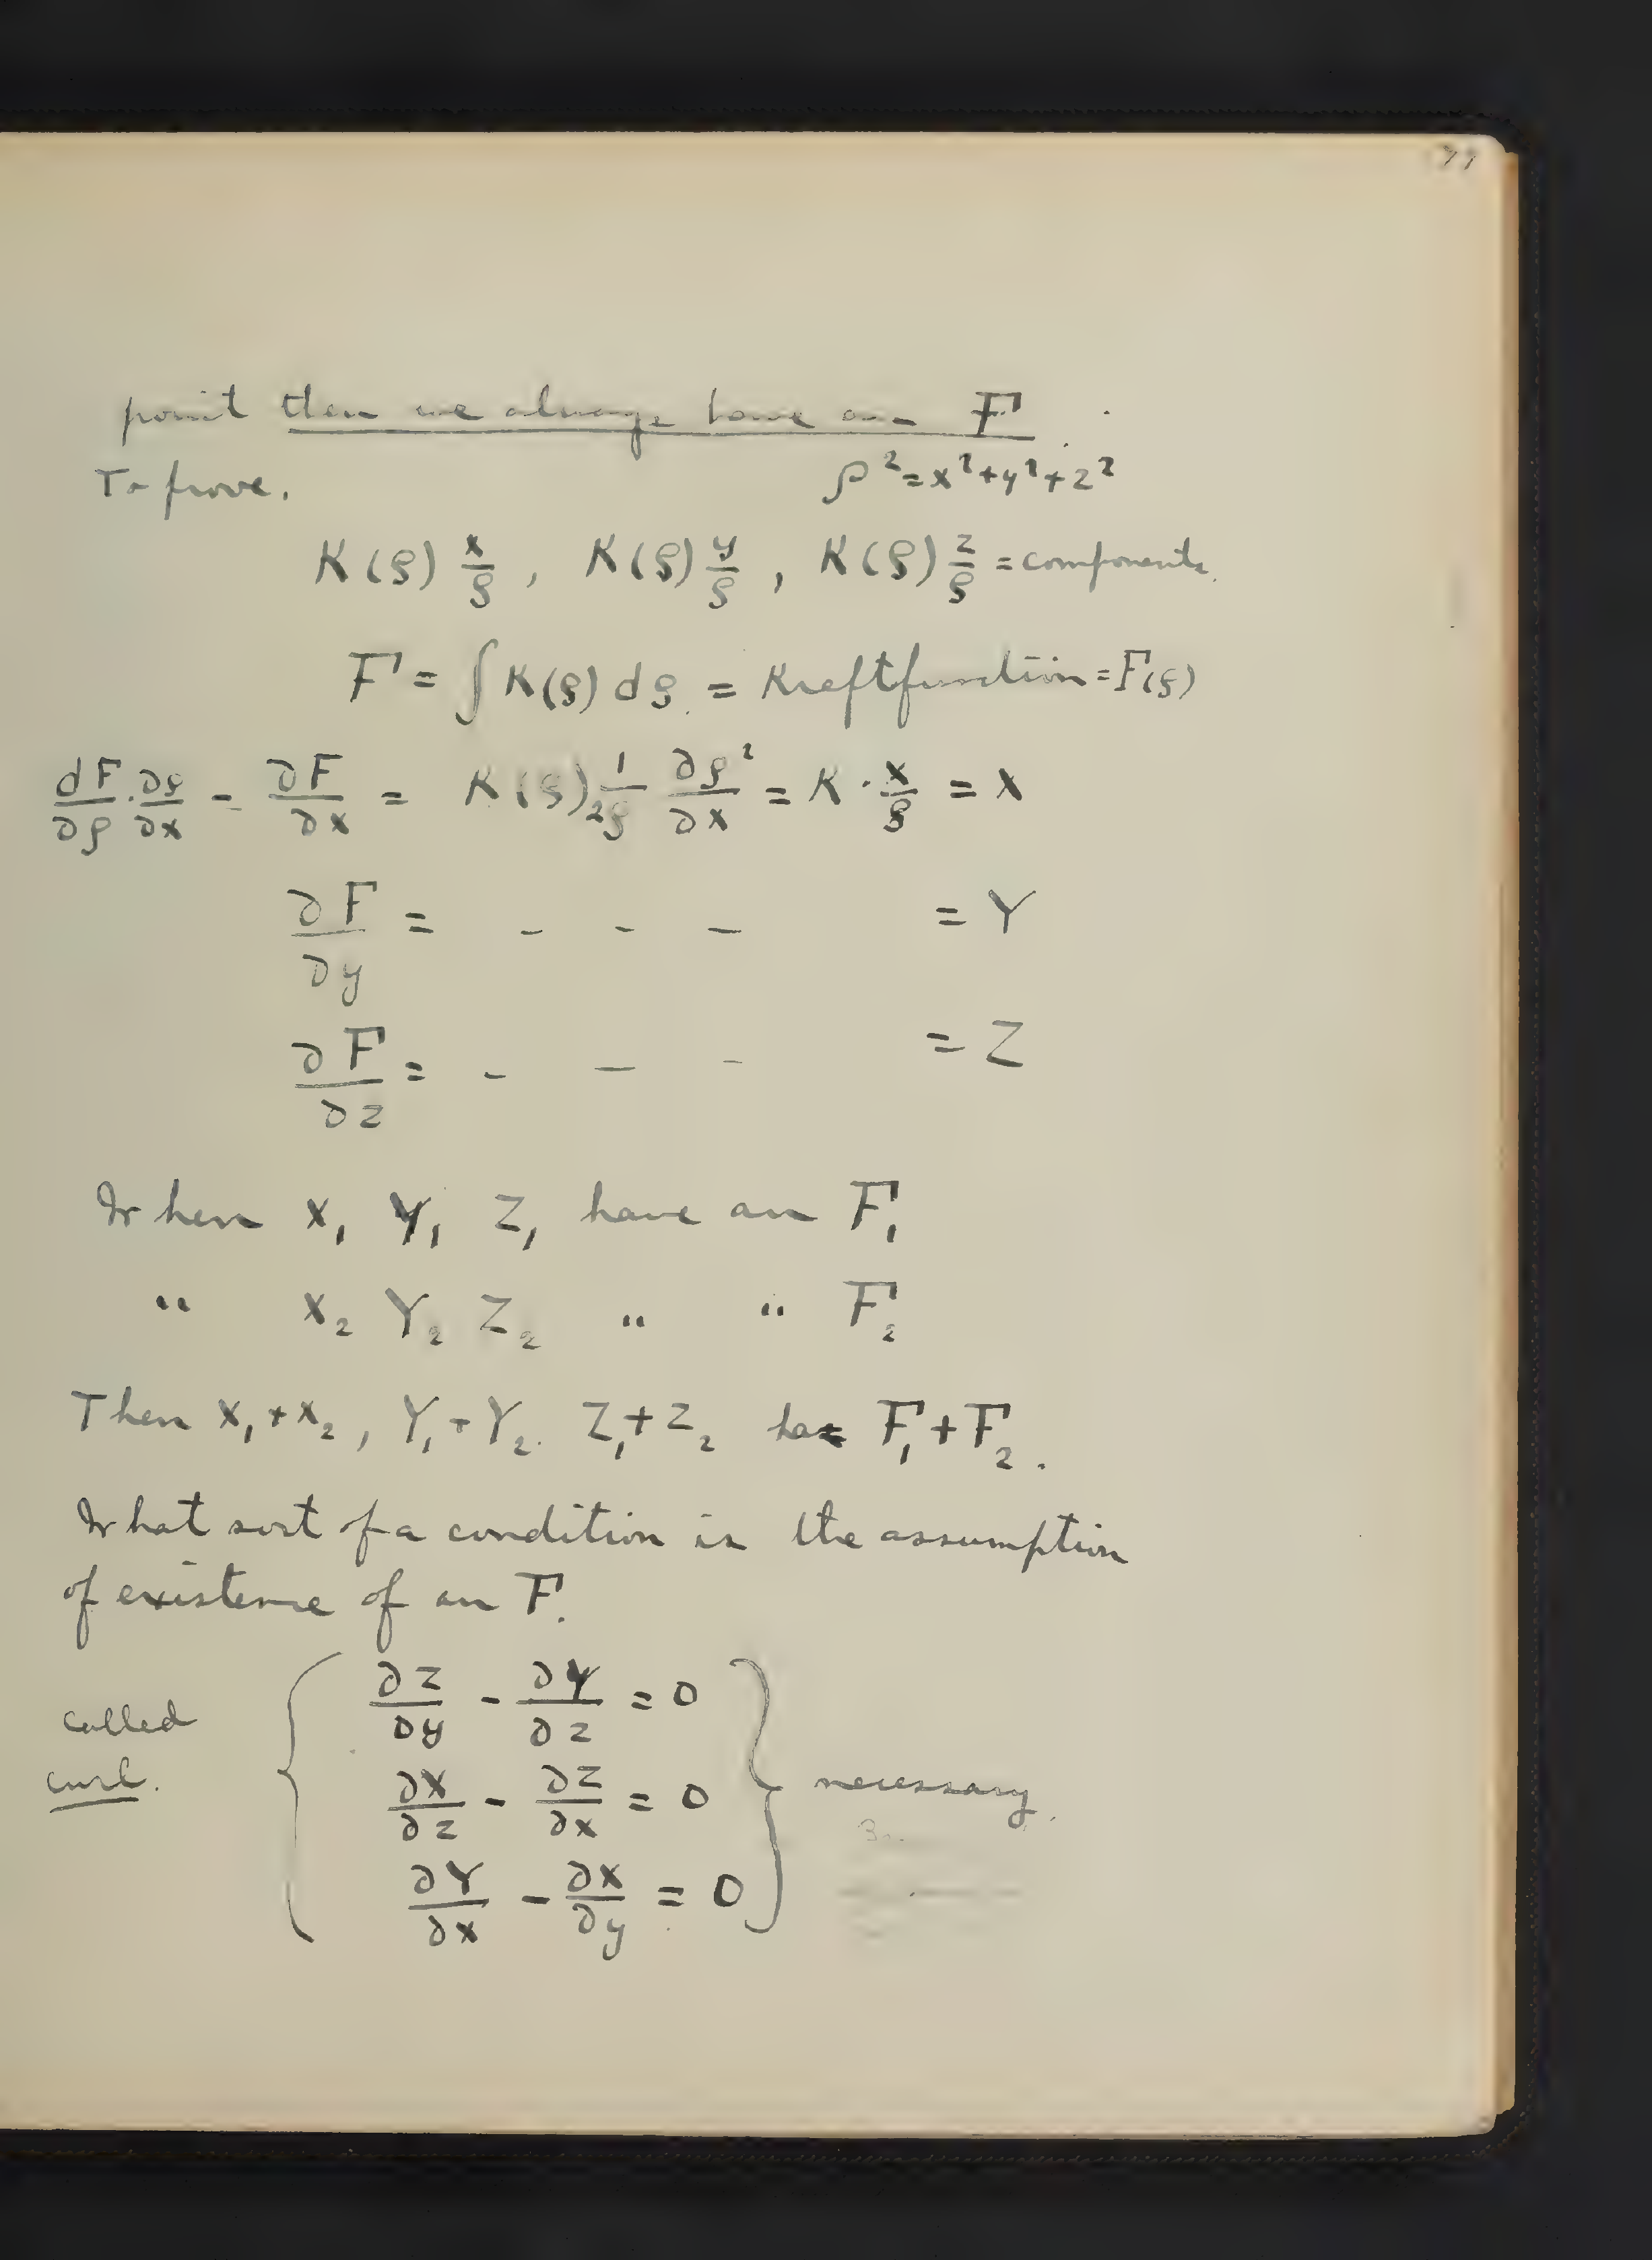 77
point then we always have an F.
To prove. ρ² = x²+y²+z²
K(ρ) x/ρ , K(ρ) y/ρ , K(ρ) z/ρ = components.
F = ∫ K(ρ) dρ. = Kraftfunction = F(ρ)
dF/∂ρ · ∂ρ/∂x = ∂F/∂x = K(ρ) 1/2ρ ∂ρ²/∂x = K · x/ρ = X
∂F/∂y = - - - = Y
∂F/∂z = - - - = Z
When X₁ Y₁ Z₁ have an F₁
" X₂ Y₂ Z₂ " " F₂
Then X₁+X₂, Y₁+Y₂. Z₁+Z₂ has F₁+F₂.
What sort of a condition is the assumption
of existence of an F.
called curl.
∂Z/∂y - ∂Y/∂z = 0
∂X/∂z - ∂Z/∂x = 0
∂Y/∂x - ∂X/∂y = 0
necessary.